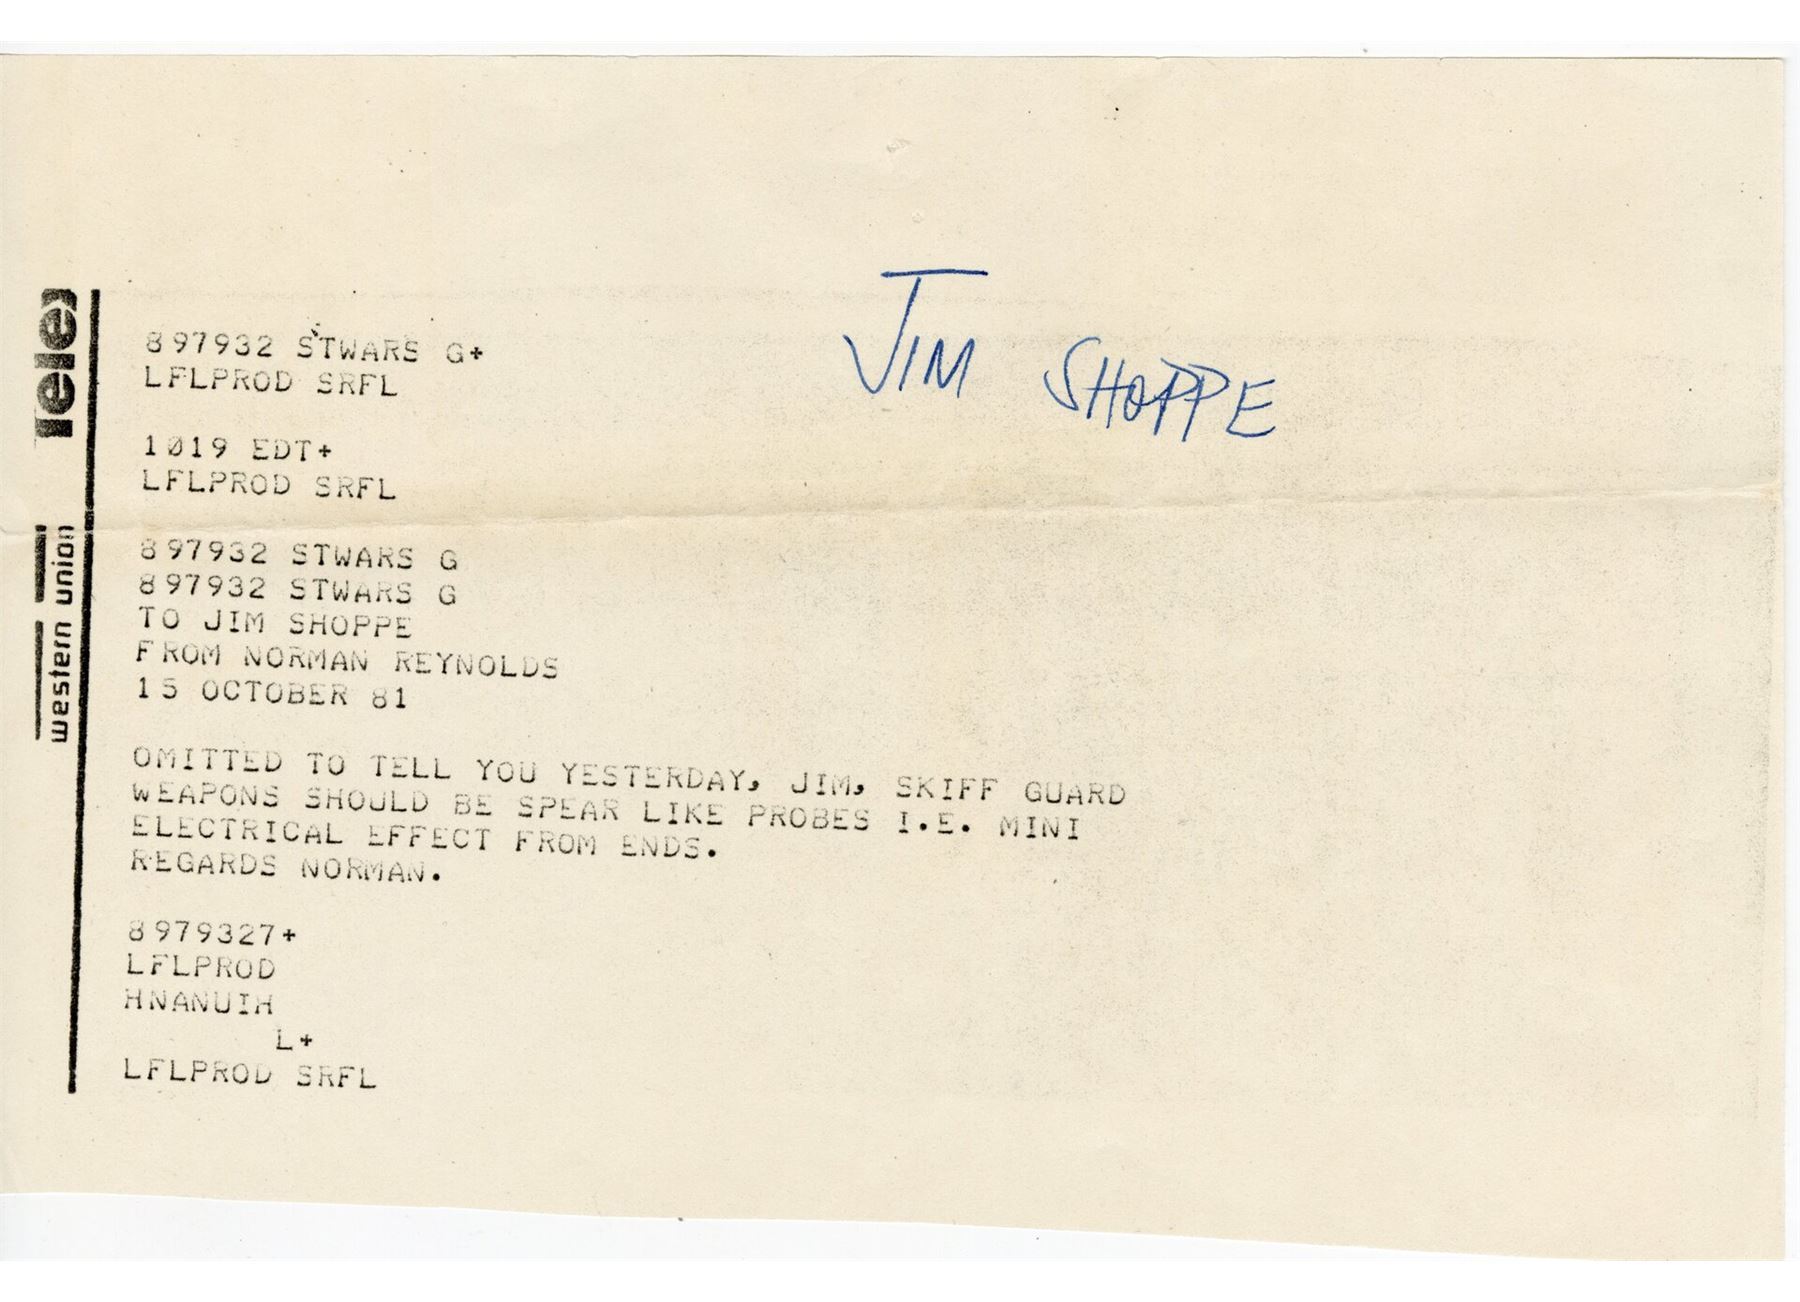 Telex
western union
JIM SHOPPE
897932 STWARS G+
LFLPROD SRFL
1019 EDT+
LFLPROD SRFL
897932 STWARS G
897932 STWARS G
TO JIM SHOPPE
FROM NORMAN REYNOLDS
15 OCTOBER 81
OMITTED TO TELL YOU YESTERDAY, JIM, SKIFF GUARD
WEAPONS SHOULD BE SPEAR LIKE PROBES I.E. MINI
ELECTRICAL EFFECT FROM ENDS.
REGARDS NORMAN.
8979327+
LFLPROD
HNANUIH
L+
LFLPROD SRFL